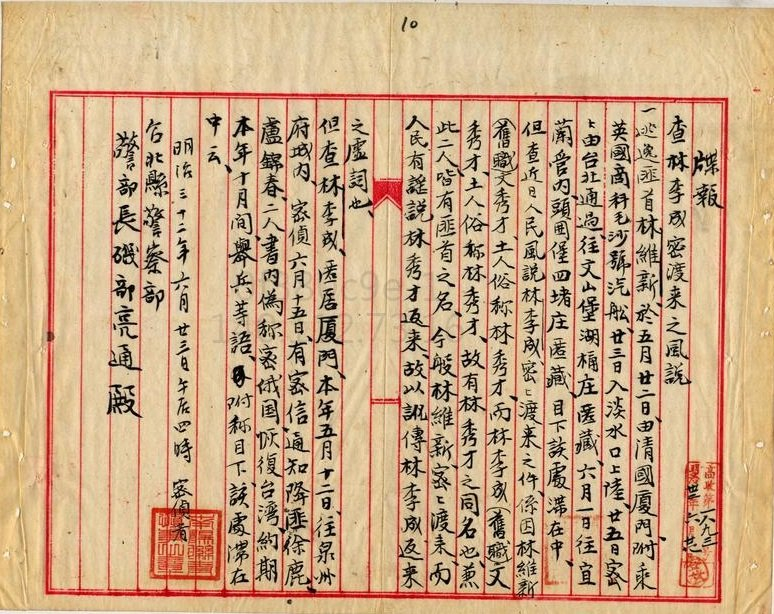 10
牒報
查林李成密渡来之風說
一逃逸匪首林維新、於五月廿二日由清國廈門附乘
英國商科毛沙號汽船、廿三日入淡水口上陸、廿五日密
ヒ由台北通過往文山堡湖桶庄匿藏、六月一日往宜
蘭管內頭囲堡四堵庄匿藏、目下該處滞在中、
但查近日人民風說林李成密ヒ渡来之件、係因林維新
舊職文秀才、土人俗称林秀才、而林李成舊職文
秀才、土人俗称林秀才、故有林秀才之同名也、兼
此二人皆有匪首之名、今般林維新、密ヒ渡来、而
人民有謠說林秀才返来、故以訛傳林李成返来
之虛詞也、
但查林李成、匿居廈門、本年五月十二日、往泉州
府城內、密偵六月十五日、有密信、通知降匪徐鹿、
盧錦春、二人、書內偽称密俄国恢復台湾、約期
本年十月間舉兵等語、附称目下該處滞在
中云、
明治三十二年六月廿三日午后四時 密偵者
台北縣警察部
警部長磯部亮通殿